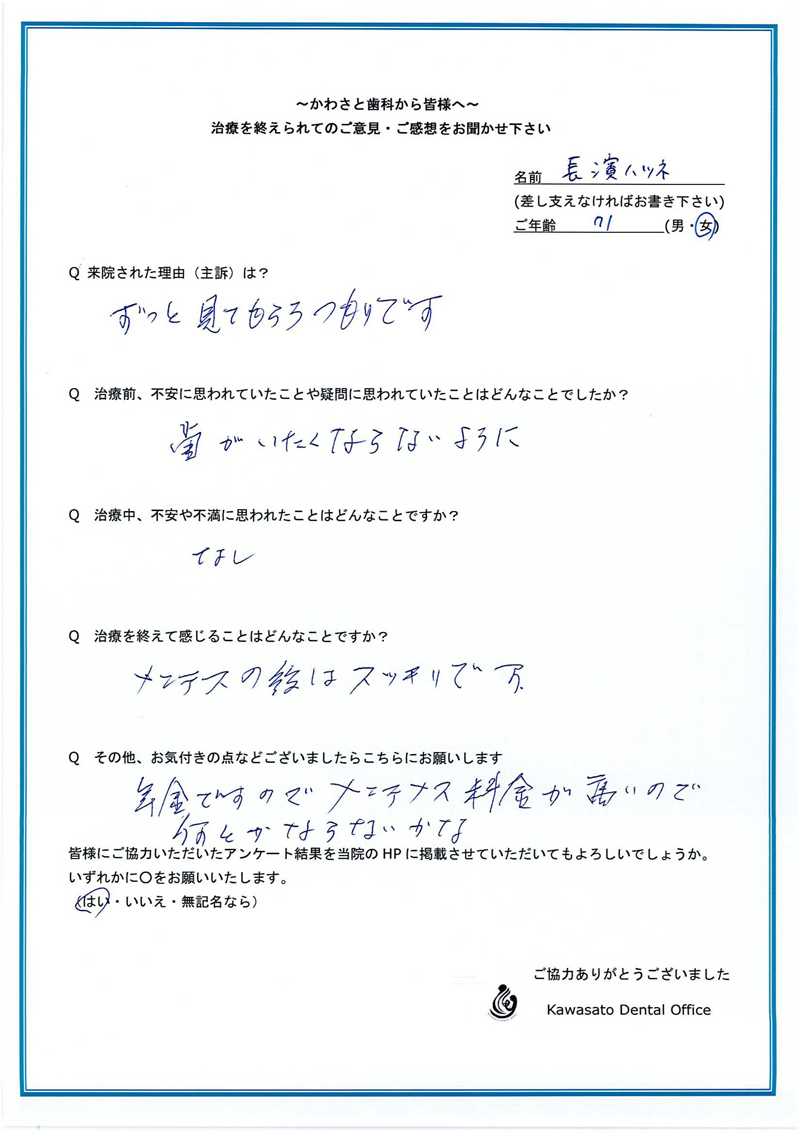 ～かわさと歯科から皆様へ～
治療を終えられてのご意見・ご感想をお聞かせ下さい
名前 長濱ハツネ
(差し支えなければお書き下さい)
ご年齢 71 (男・女)
Q 来院された理由（主訴）は？
ずっと見てもらうつもりです
Q 治療前、不安に思われていたことや疑問に思われていたことはどんなことでしたか？
歯がいたくならないように
Q 治療中、不安や不満に思われたことはどんなことですか？
なし
Q 治療を終えて感じることはどんなことですか？
メンテスの後はスッキリです。
Q その他、お気付きの点などございましたらこちらにお願いします
年金ですのでメンテナス料金が高いので
何とかならないかな
皆様にご協力いただいたアンケート結果を当院の HP に掲載させていただいてもよろしいでしょうか。
いずれかに〇をお願いいたします。
（はい・いいえ・無記名なら）
ご協力ありがとうございました
Kawasato Dental Office